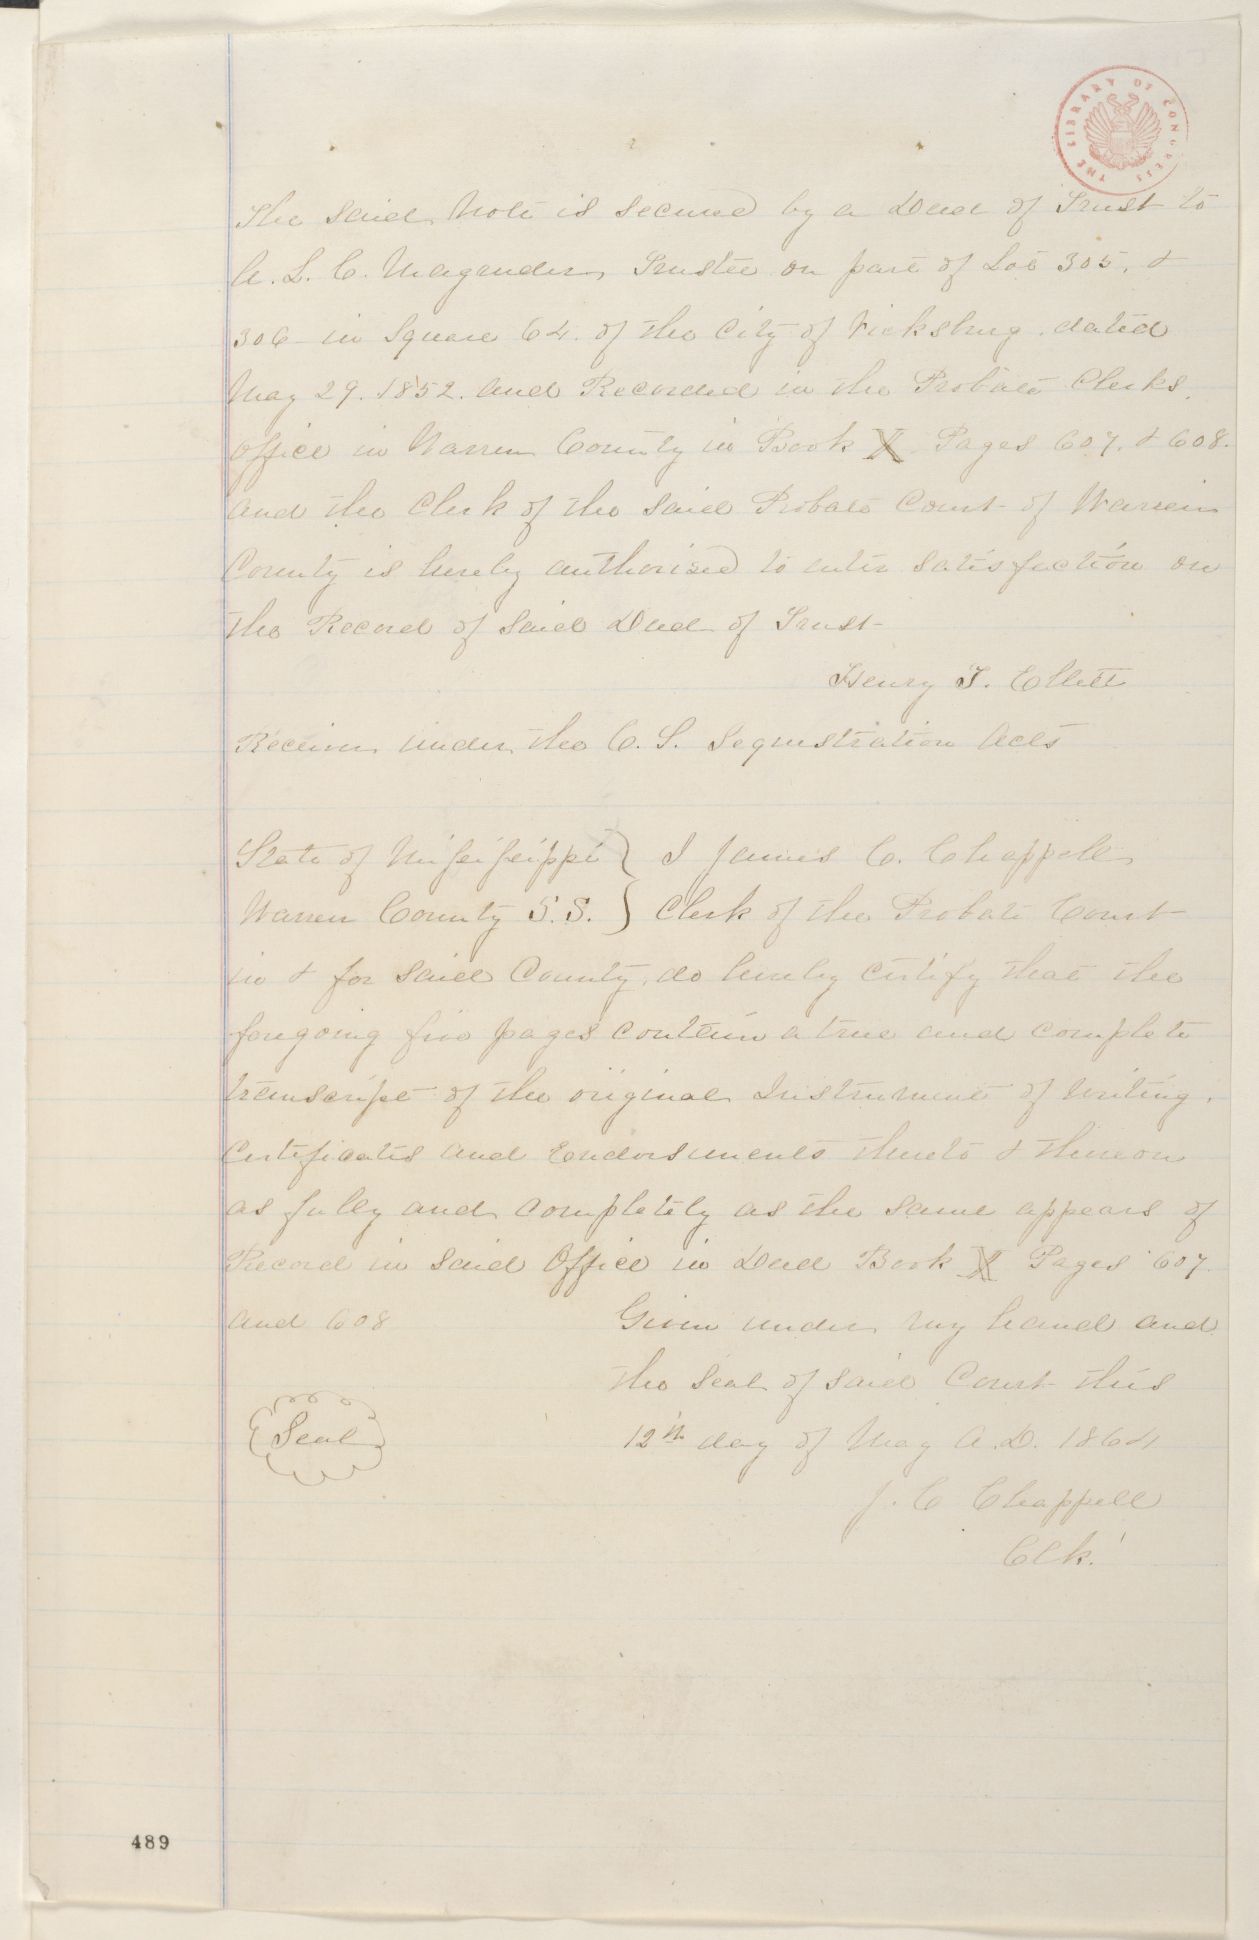 THE LIBRARY OF CONGRESS
The said Note is secured by a Deed of Trust to
A. L. C. Magruder, Trustee on part of Lot 305, &
306 in Square 64. of the City of Vicksburg. dated
May 29. 1852. and Recorded in the Probate Clerks
Office in Warren County in Book X Pages 607. & 608.
and the Clerk of the said Probate Court of Warren
County is hereby authorized to enter satisfaction on
the Record of said Deed of Trust
Henry T. Ellett
Receiver under the C. S. Sequestration Acts
State of Mississippi } I James C. Chappell
Warren County S.S. } Clerk of the Probate Court
in & for said County, do hereby certify that the
foregoing five pages contain a true and complete
transcript of the original Instrument of writing,
Certificates and Endorsements thereto & thereon
as fully and completely as the same appears of
Record in said Office in Deed Book Pages 607
and 608 Given under my hand and
the Seal of said Court this
Seal 12th day of May A.D. 1864
J. C Chappell
Clk.
489